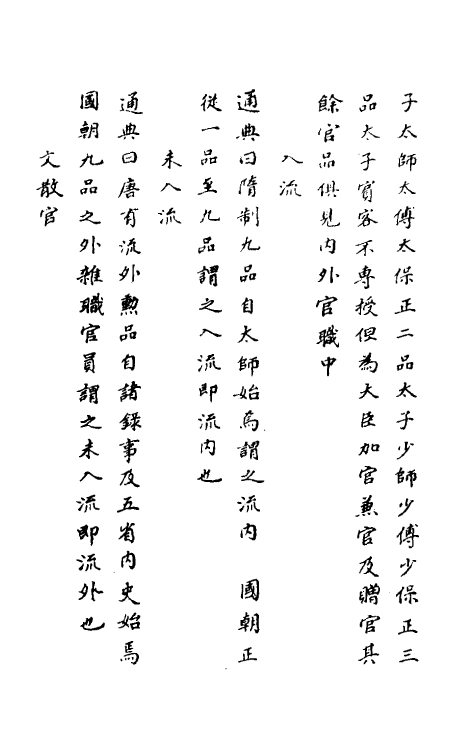 子太師太傅太保正二品太子少師少傅少保正三
品太子賓客不專授但為大臣加官兼官及贈官其
餘官品俱見内外官職中
入流
通典曰隋制九品自太師始焉謂之流内　國朝正
從一品至九品謂之入流即流内也
未入流
通典曰唐有流外勲品自諸錄事及五省内史始焉
國朝九品之外雜職官員謂之未入流即流外也
文散官